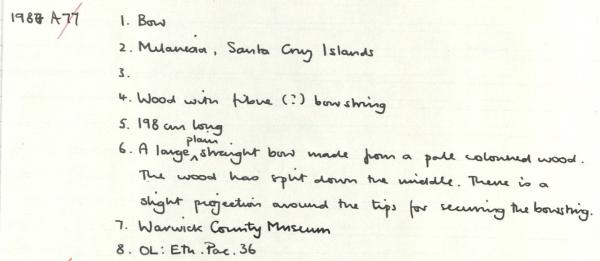 1987 A77 1. Bow
2. Melanesia, Santa Cruz Islands
3.
4. Wood with fibre (?) bowstring
5. 198 cm long
6. A large plain straight bow made from a pale coloured wood.
The wood has split down the middle. There is a
slight projection around the tips for securing the bowstring.
7. Warwick County Museum
8. OL: Eth. Pac. 36